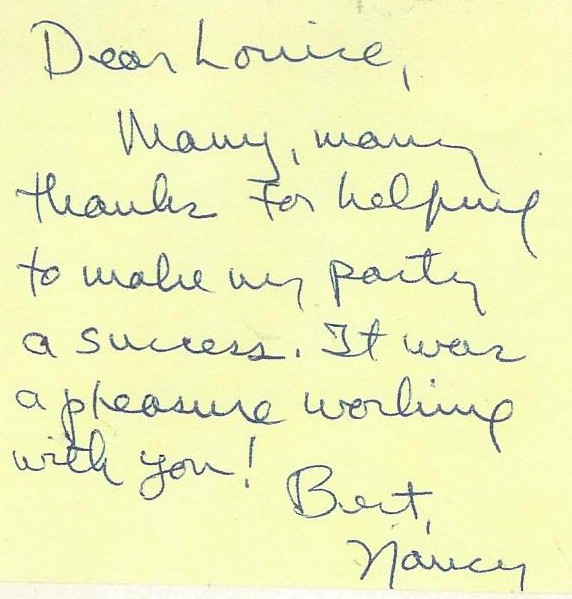 Dear Louise,
Many, many
thanks for helping
to make my party
a success. It was
a pleasure working
with you!
Best,
Nancy